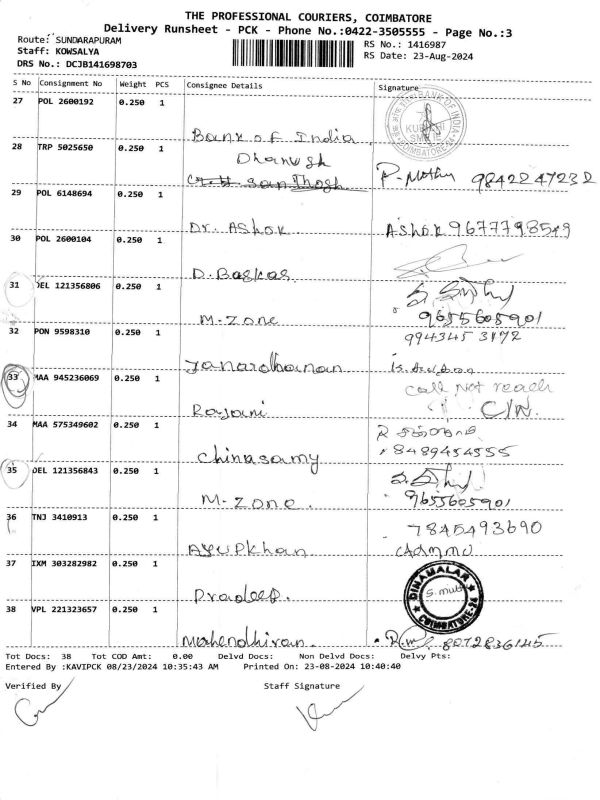 THE PROFESSIONAL COURIERS, COIMBATORE
Delivery Runsheet - PCK - Phone No.:0422-3505555 - Page No.:3
Route: SUNDARAPURAM
Staff: KOWSALYA
DRS No.: DCJB141698703
RS No.: 1416987
RS Date: 23-Aug-2024
S No Consignment No Weight PCS Consignee Details Signature
27 POL 2600192 0.250 1
BANK OF INDIA
COIMBATORE
Bank of India
28 TRP 5025650 0.250 1
Dhanush
Santhosh
98422 47232
29 POL 6148694 0.250 1
Dr. Ashok
Ashok 9677798549
30 POL 2600104 0.250 1
D. Baskar
31 DEL 121356806 0.250 1
M-Zone
9655605901
32 PON 9598310 0.250 1
9943453172
Janardhanan
33 MAA 945236069 0.250 1
call not reach
Rajani
34 MAA 575349602 0.250 1
8489454555
Chinasamy
35 DEL 121356843 0.250 1
M-Zone
9655605901
36 TNJ 3410913 0.250 1
7845493690
Ayupkhan
37 IXM 303282982 0.250 1
Pradeep.
DINAMALAR
COIMBATORE-24
38 VPL 221323657 0.250 1
Mahendhiran. 8072836145
Tot Docs: 38 Tot COD Amt: 0.00 Delvd Docs: Non Delvd Docs: Delvy Pts:
Entered By :KAVIPCK 08/23/2024 10:35:43 AM Printed On: 23-08-2024 10:40:40
Verified By Staff Signature